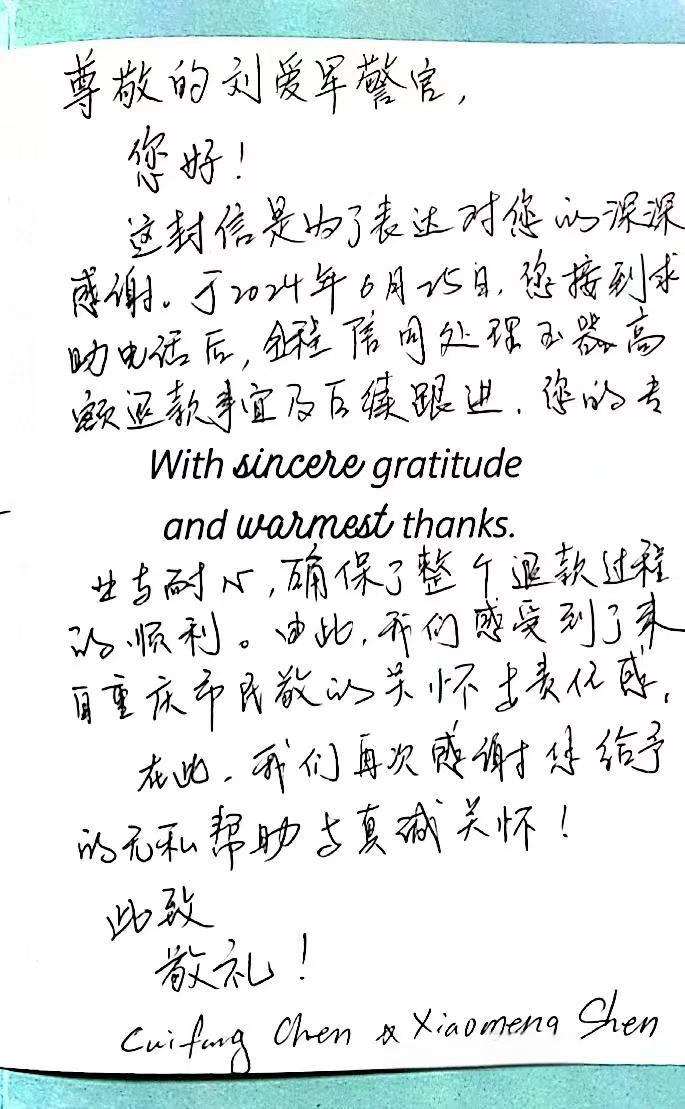 尊敬的刘爱军警官，
您好！
这封信是为了表达对您的深深
感谢。于2024年6月25日，您接到求
助电话后，全程陪同处理玉器高
额退款事宜及后续跟进。您的专
With sincere gratitude
and warmest thanks.
业与耐心，确保了整个退款过程
的顺利。由此，我们感受到了来
自重庆市民警的关怀与责任感，
在此，我们再次感谢您给予
的无私帮助与真诚关怀！
此致
敬礼！
Cuifang Chen & Xiaomeng Shen